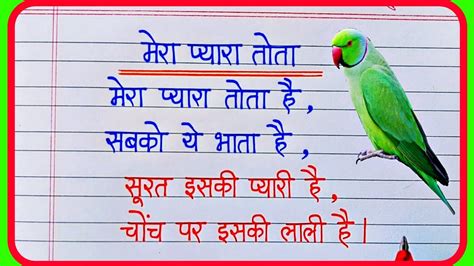 मेरा प्यारा तोता
मेरा प्यारा तोता है,
सबको ये भाता है,
सूरत इसकी प्यारी है,
चोंच पर इसकी लाली है।